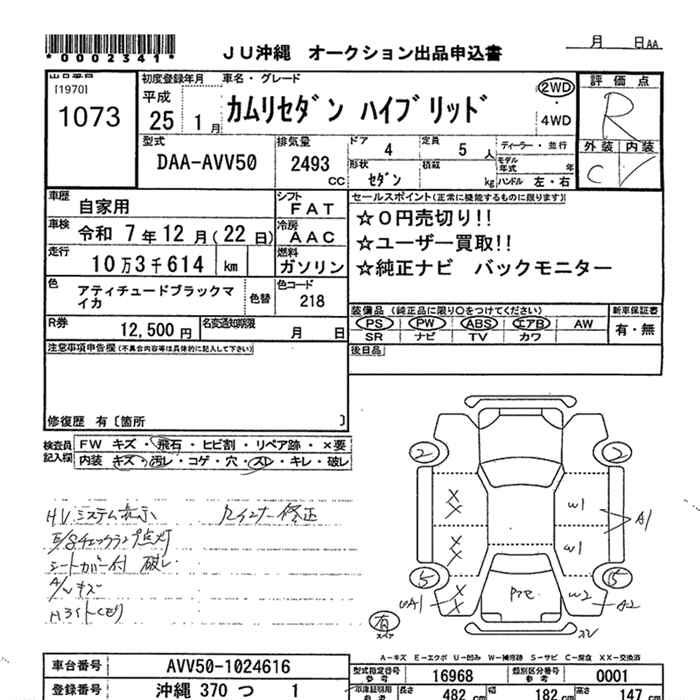 *0002341*
JU沖縄 オークション出品申込書
月 日AA
出品番号
[1970]
1073
初度登録年月
平成
25 1月
車名・グレード
カムリセダン ハイブリッド
2WD
・
4WD
評価点
R
外装 内装
C
型式
DAA-AVV50
排気量
2493
CC
ドア
4
定員
5 人
形状
セダン
積載
kg
ディーラー・並行
モデル年式 年
ハンドル 左・右
車歴
自家用
車検
令和 7年12月(22日)
走行
10万3千614 km
シフト
FAT
冷房
AAC
燃料
ガソリン
色
アティチュードブラックマイカ
色替
色コード
218
R券
12,500円
名変通知期限
月 日
セールスポイント(正常に機能するものに限ります)
☆0円売切り!!
☆ユーザー買取!!
☆純正ナビ バックモニター
装備品(純正品に限り○をつけてください)
PS PW ABS エアB AW
SR ナビ TV カワ
新車保証書
有・無
後日品
注意事項申告欄(不具合内容等は具体的に記入して下さい)
修復歴 有〔箇所 〕
検査員記入欄
FW キズ・飛石・ヒビ割・リペア跡・×要
内装 キズ・汚レ・コゲ・穴・スレ・キレ・破レ
HVシステム表示
E/Gチェックランプ点灯
シートカバー付 破レ
A/Wキズ
Hライトくもり
Rインナー修正
2 2
X
X
W1
A1
X
X
W1
5 5
UA1
X
X
W2
A2
有
A-キズ E-エクボ U-凹み W-補修跡 S-サビ C-腐食 XX-交換済
車台番号 AVV50-1024616
登録番号 沖縄 370 つ 1
型式指定番号 参考
16968
類別区分番号 参考
0001
車庫証明用 参考
長さ 482 cm
幅 182 cm
高さ 147 cm